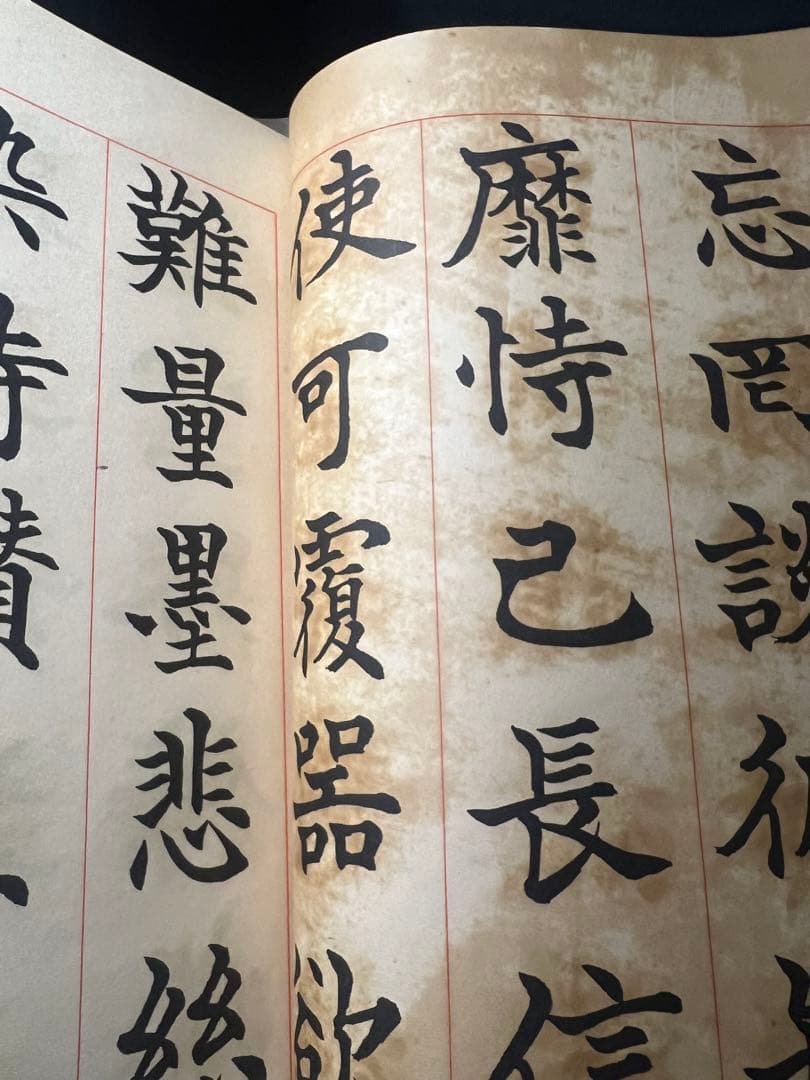 忘罔談彼
靡恃己長信
使可覆器欲
難量墨悲絲